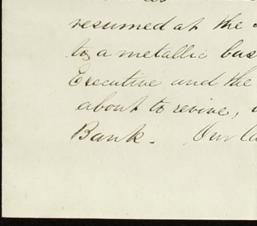 resumed at the
to a metallic bas
Executive and the
about to revive,
Bank. Our